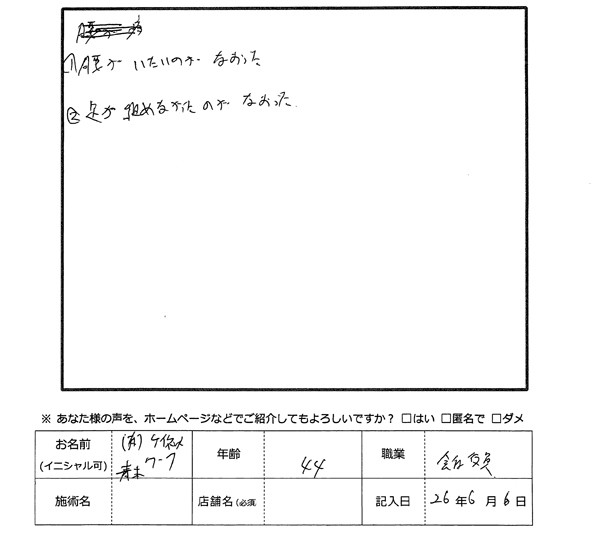 ①腰が いたいのが なおった
②足が 組めなかったのが なおった
※ あなた様の声を、ホームページなどでご紹介してもよろしいですか？ □はい □匿名で □ダメ
お名前
(イニシャル可)
(有)
ワーク
年齢
44
職業
会社役員
施術名
店舗名(必須
記入日
26年6月6日